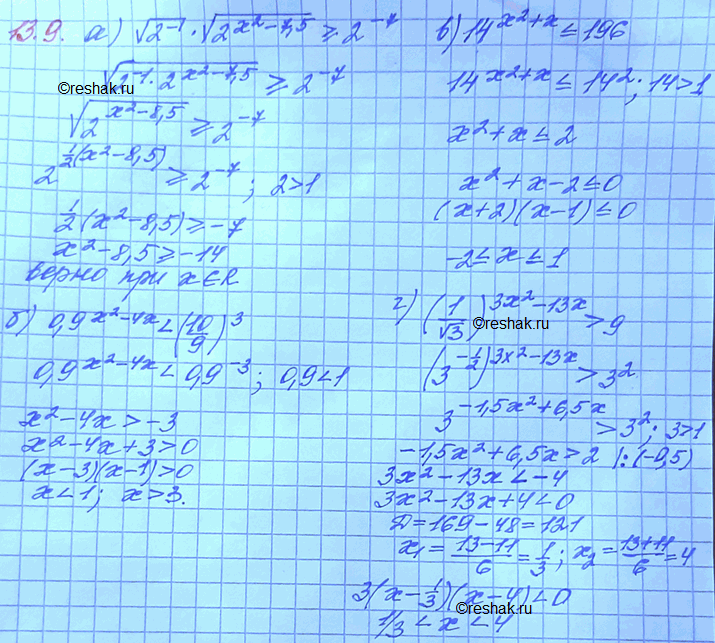 13.9. а) √2⁻¹ · √2^(x²−7,5) ≥ 2⁻⁷
√(2⁻¹ · 2^(x²−7,5)) ≥ 2⁻⁷
©reshak.ru
√(2^(x²−8,5)) ≥ 2⁻⁷
2^(½(x²−8,5)) ≥ 2⁻⁷; 2>1
½(x²−8,5) ≥ −7
x²−8,5 ≥ −14
верно при x∈R
б) 0,9^(x²−4x) < (10/9)³
0,9^(x²−4x) < 0,9⁻³; 0,9<1
x²−4x > −3
x²−4x+3>0
(x−3)(x−1)>0
x<1; x>3.
в) 14^(x²+x) ≤ 196
14^(x²+x) ≤ 14²; 14>1
x²+x ≤ 2
x²+x−2≤0
(x+2)(x−1) ≤0
−2≤x≤1
г) (1/√3)^(3x²−13x) > 9
©reshak.ru
(3^(−½))^(3x²−13x) > 3²
3^(−1,5x²+6,5x) > 3²; 3>1
−1,5x²+6,5x>2 |:(−0,5)
3x²−13x < −4
3x²−13x+4<0
D=169−48=121
x₁ = (13−11)/6 = 1/3; x₂ = (13+11)/6 = 4
3(x−1/3)(x−4)<0
©reshak.ru
1/3 < x < 4